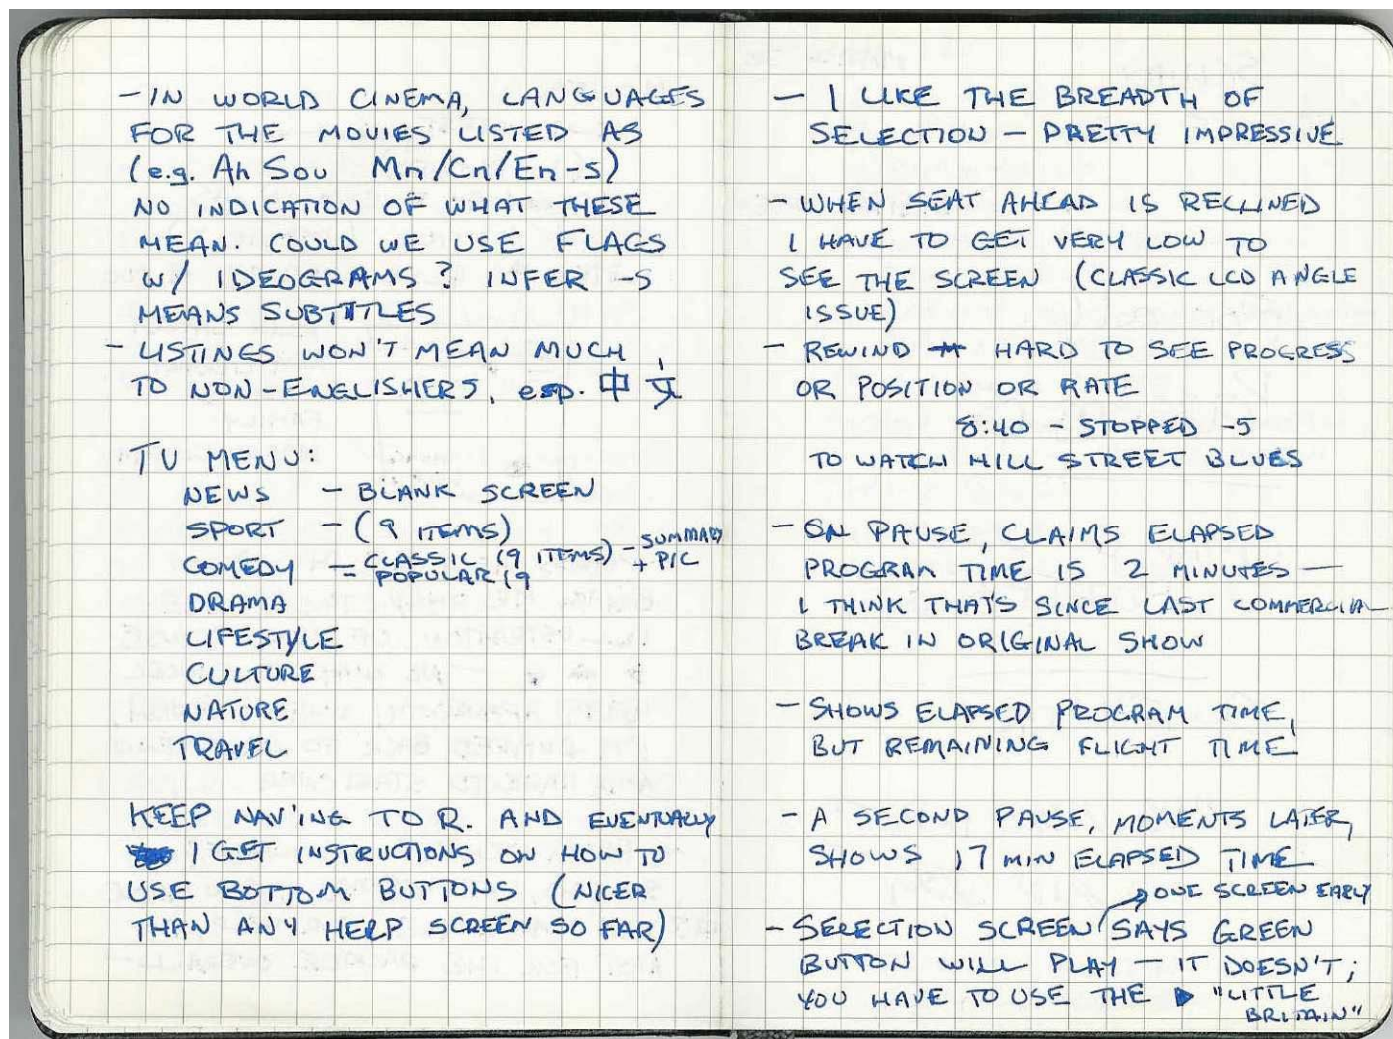 - IN WORLD CINEMA, LANGUAGES
FOR THE MOVIES LISTED AS
(e.g. Ah Sou Mn/Cn/En-s)
NO INDICATION OF WHAT THESE
MEAN. COULD WE USE FLAGS
W/ IDEOGRAMS? INFER -S
MEANS SUBTITLES
- LISTINGS WON'T MEAN MUCH
TO NON-ENGLISHERS, esp. 中文
TV MENU:
NEWS - BLANK SCREEN
SPORT - (9 ITEMS)
COMEDY - CLASSIC (9 ITEMS) - SUMMARY + PIC
- POPULAR (9
DRAMA
LIFESTYLE
CULTURE
NATURE
TRAVEL
KEEP NAV'ING TO R. AND EVENTUALLY
I GET INSTRUCTIONS ON HOW TO
USE BOTTOM BUTTONS (NICER
THAN ANY HELP SCREEN SO FAR)
- I LIKE THE BREADTH OF
SELECTION - PRETTY IMPRESSIVE
- WHEN SEAT AHEAD IS RECLINED
I HAVE TO GET VERY LOW TO
SEE THE SCREEN (CLASSIC LCD ANGLE
ISSUE)
- REWIND HARD TO SEE PROGRESS
OR POSITION OR RATE
8:40 - STOPPED -5
TO WATCH HILL STREET BLUES
- ON PAUSE, CLAIMS ELAPSED
PROGRAM TIME IS 2 MINUTES —
I THINK THAT'S SINCE LAST COMMERCIAL
BREAK IN ORIGINAL SHOW
- SHOWS ELAPSED PROGRAM TIME,
BUT REMAINING FLIGHT TIME
- A SECOND PAUSE, MOMENTS LATER,
SHOWS 17 MIN ELAPSED TIME
→ ONE SCREEN EARLY
- SELECTION SCREEN SAYS GREEN
BUTTON WILL PLAY - IT DOESN'T;
YOU HAVE TO USE THE ▶ "LITTLE
BRITAIN"